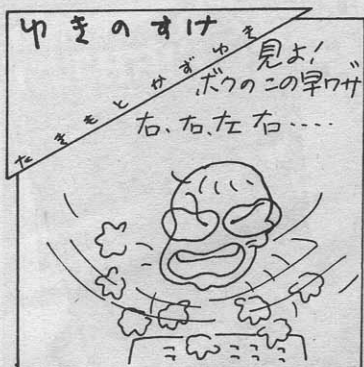 ゆきのすけ
たきもとかずゆき
見よ!
ボクのこの早ワザ
右、右、左右.....